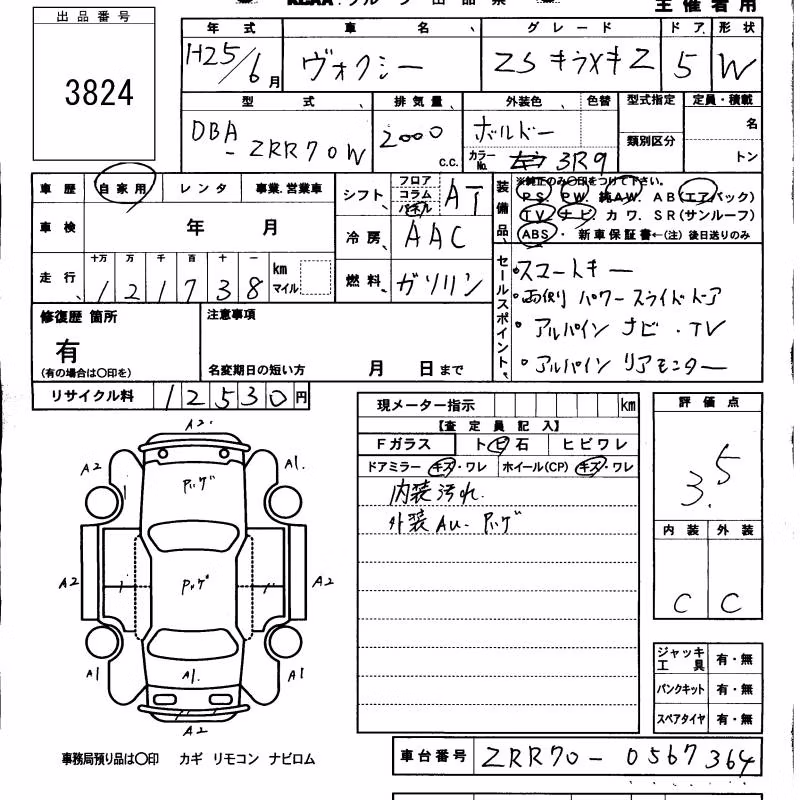 主催者用
出品番号
3824
年式 車名 グレード ドア 形状
H25/6月 ヴォクシー ZS キラメキZ 5 W
型式 排気量 外装色 色替 型式指定 定員・積載
DBA-ZRR70W 2000 c.c. ボルドー 類別区分 名
カラーNo. 3R9 トン
車歴 自家用 レンタ 事業.営業車
シフト フロア コラム パネル AT
装備品 ※純正のみ〇印をつけて下さい。
PS. PW. 純AW. AB(エアバック)
TV ナビ カワ. SR(サンルーフ)
ABS・ 新車保証書←(注)後日送りのみ
車検 年 月
冷房 AAC
走行 十万 万 千 百 十 一 km マイル
121738
燃料 ガソリン
セールスポイント
・スマートキー
・両側 パワースライドドア
・アルパイン ナビ・TV
・アルパイン リアモニター
修復歴 箇所
有
(有の場合は〇印を)
注意事項
名変期日の短い方 月 日まで
リサイクル料 12530円
現メーター指示 km
【査定員記入】
Fガラス トビ石 ヒビワレ
ドアミラー キズ・ワレ ホイール(CP) キズ・ワレ
内装汚れ.
外装AU- Pッゲ
評価点
3.5
内装 外装
C C
A2.
A2 A1.
Pッゲ
A2 Pッゲ A2
A1 A1. A1
A2
ジャッキ工具 有・無
パンクキット 有・無
スペアタイヤ 有・無
事務局預り品は〇印 カギ リモコン ナビロム
車台番号 ZRR70-0567364